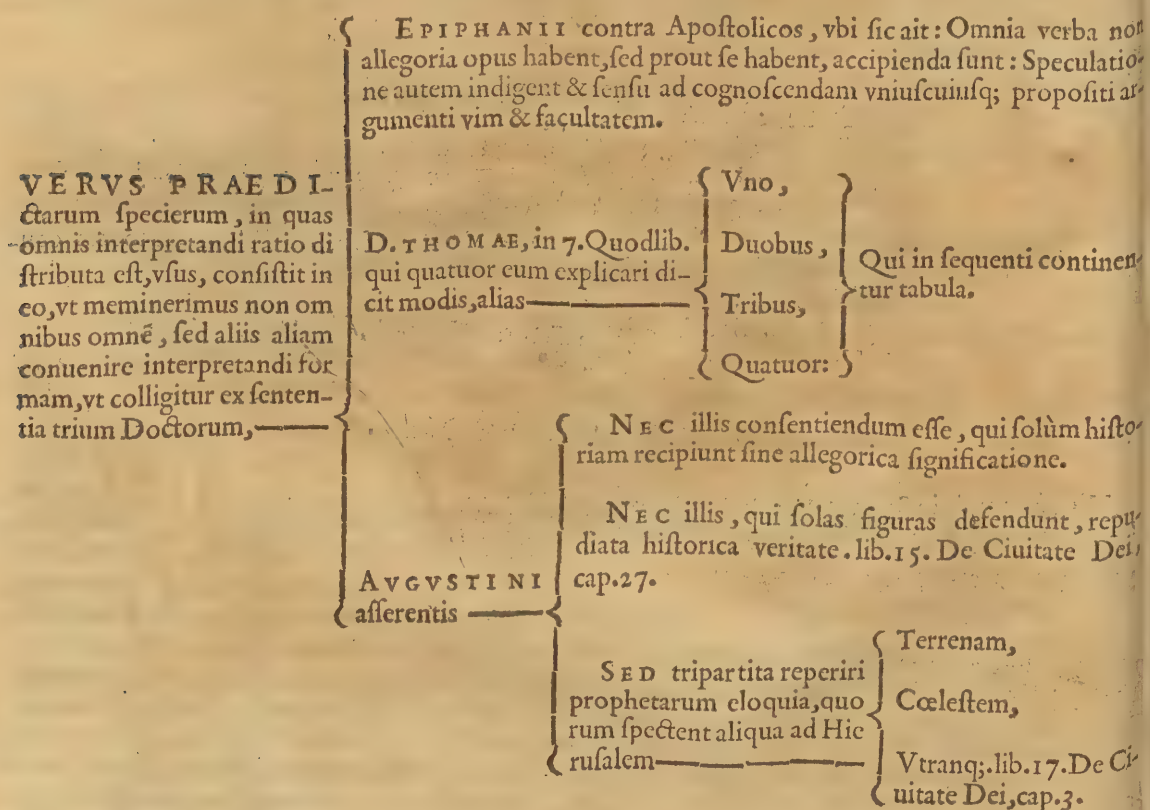 VERVS PRAEDI-
ctarum ſpecierum, in quas
omnis interpretandi ratio di
ſtributa eſt, vſus, conſiſtit in
eo, vt meminerimus non om
nibus omnẽ, ſed aliis aliam
conuenire interpretandi for
mam, vt colligitur ex ſenten-
tia trium Doctorum,
EPIPHANII contra Apoſtolicos, vbi ſic ait: Omnia verba non
allegoria opus habent, ſed prout ſe habent, accipienda ſunt: Speculatio-
ne autem indigent & ſenſu ad cognoſcendam vniuſcuiuſq; propoſiti ar-
gumenti vim & facultatem.
D. THOMAE, in 7. Quodlib.
qui quatuor eum explicari di-
cit modis, alias
Vno,
Duobus,
Tribus,
Quatuor:
Qui in ſequenti continen-
tur tabula.
AVGVSTINI
aſſerentis
NEC illis conſentiendum eſſe, qui ſolùm hiſto-
riam recipiunt ſine allegorica ſignificatione.
NEC illis, qui ſolas figuras defendunt, repu-
diata hiſtorica veritate. lib. 15. De Ciuitate Dei,
cap. 27.
SED tripartita reperiri
prophetarum eloquia, quo
rum ſpectent aliqua ad Hie
ruſalem
Terrenam,
Cœleſtem,
Vtranq;. lib. 17. De Ci-
uitate Dei, cap. 3.